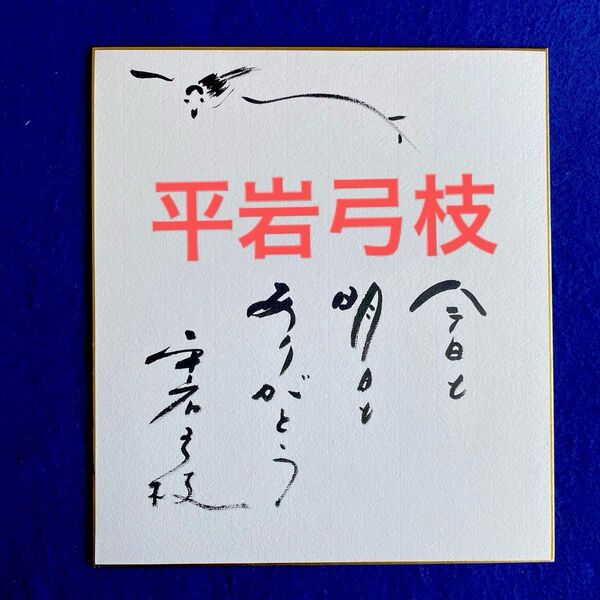 平岩弓枝
今日も
明日も
ありがとう
平岩弓枝